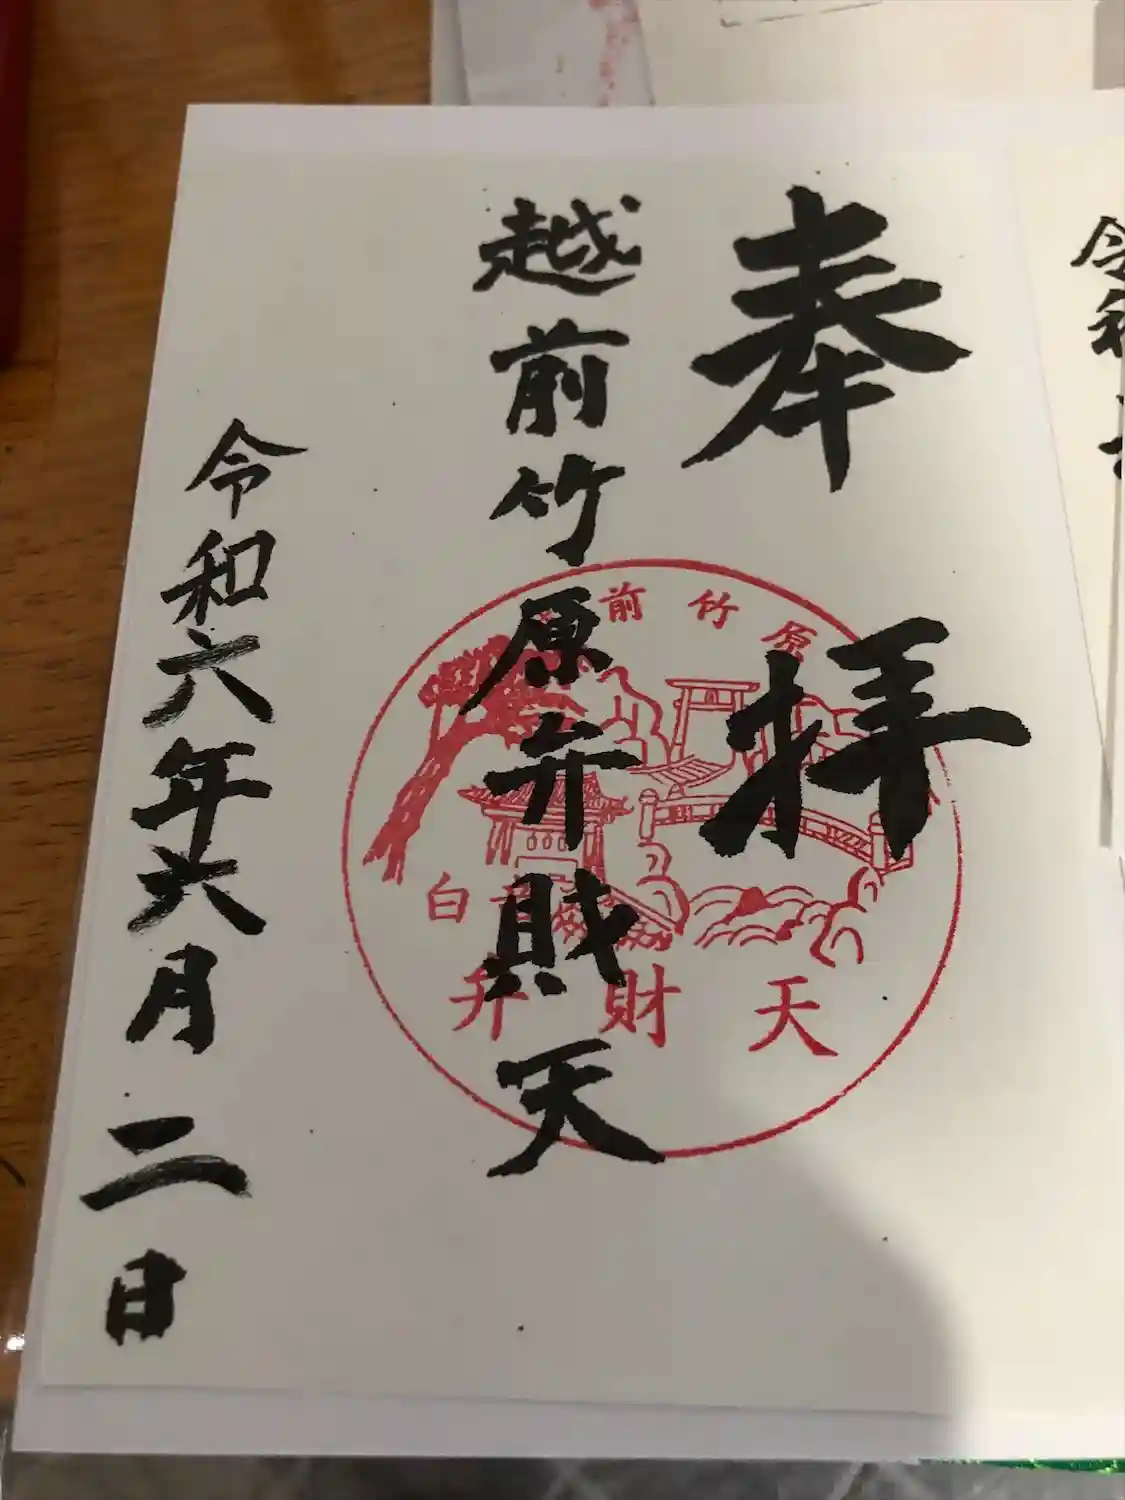 奉拝
越前竹原弁財天
令和六年六月二日
前竹原
白
弁財天
令和